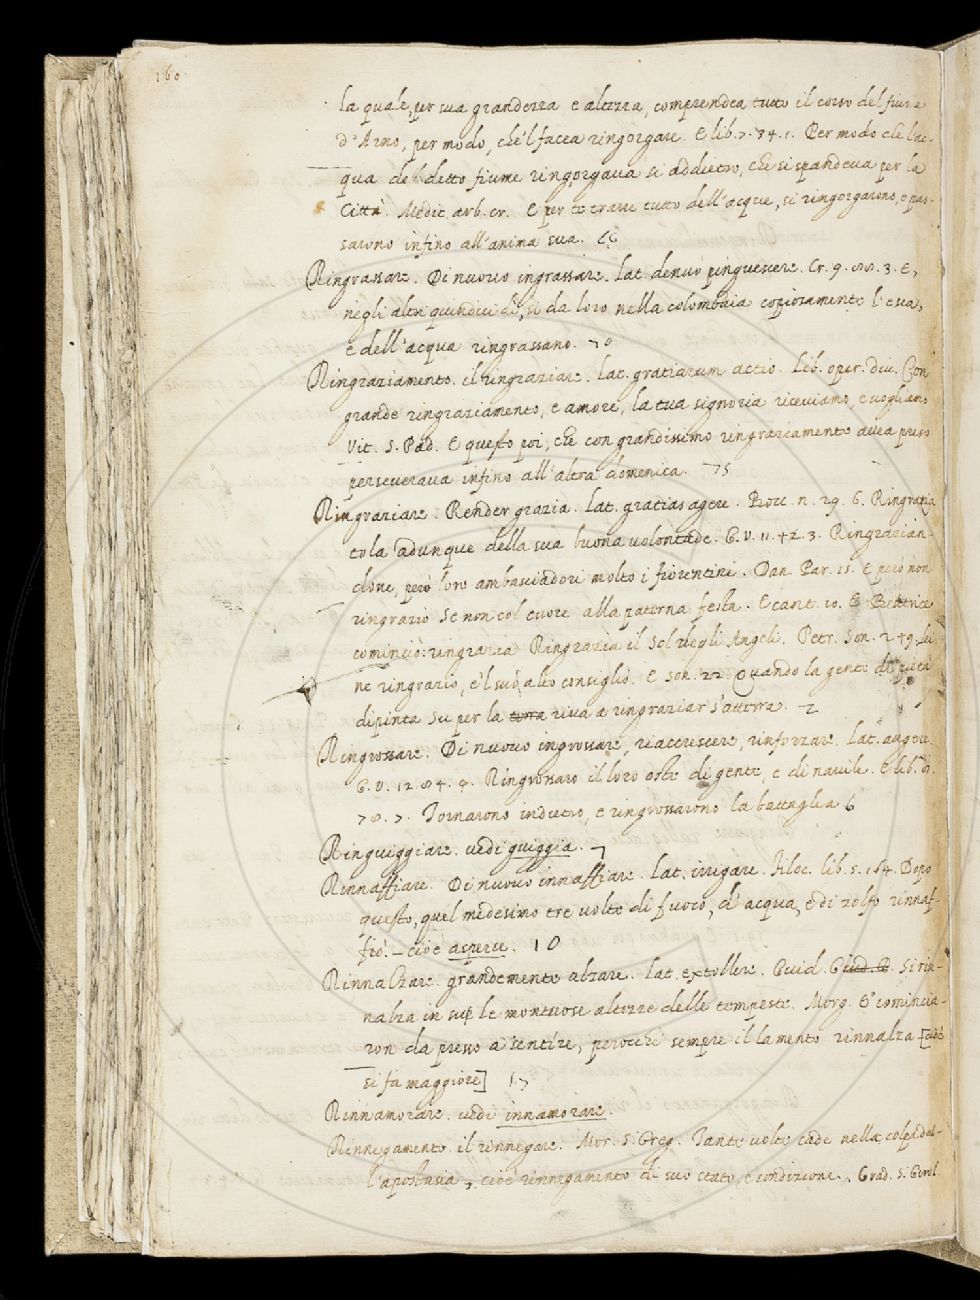 160
la quale, per sua grandezza e altezza, comprendea tutto il corso del fiume
d'Arno, per modo, che'l facea ringorgare. E lib. 7. 34. 1. Per modo che l'ac-
qua del detto fiume ringorgava sì addietro, che si spandeva per la
Città. Medit. arb. cr. E per te trarre tutto dell'acque, si ringorgarono, e pas-
sarono infino all'anima sua.
Ringrassare. Di nuovo ingrassare. Lat. denuo pinguescere. Cr. 9. 88. 3. E,
negli altri quindici dì, si da loro nella colombaia copiosamente l'esca,
e dell'acqua ringrassano. 70
Ringraziamento. il ringraziare. Lat. gratiarum actio. Lib. oper. div. Con
grande ringraziamento, e amore, la tua signoria riceviamo, e vogliamo
Vit. S. Pad. E questo poi, che con grandissimo ringraziamento avea preso
perseverava infino all'altra domenica. 75
Ringraziare. Render grazia. Lat. gratias agere. Bocc. n. 29. 6. Ringrazia
tola adunque della sua buona volontade. G. V. 11. 42. 3. Ringrazian-
done, però loro ambasciadori molto i fiorentini. Dan. Par. 15. E però non
ringrazio Se non col cuore alla paterna festa. E cant. 10. E Beatrice
cominciò: ringrazia Ringrazia il Sol degli Angeli. Petr. Son. 249. Lei
ne ringrazio, e'l suo alto consiglio. E son. 22 Quando la gente di pietà
dipinta Su per la terra riva a ringraziar s'atterra. 2
Ringrossare. Di nuovo ingrossare, riaccrescere, rinforzare. Lat. augere.
G. V. 12. 84. 9. Ringrossaro il loro oste di gente, e di navile. E lib. 8.
78. 7. Tornarono indietro, e ringrossarono la battaglia 6
Ringuiggiare. vedi guiggia. 7
Rinnaffiare. Di nuovo innaffiare. Lat. irrigare. Filoc. lib. 5. 164. Dopo
questo, quel medesimo tre volte di fuoco, d'acqua, e di zolfo rinnaf-
fiò. – cioè asperse. 10
Rinnalzare. grandemente alzare. Lat. extollere. Guid. Guid. G. Si rin-
nalza in su le montuose altezze delle tempeste. Morg. E comincia-
ron da presso a sentire, perocchè sempre il lamento rinnalza [cioè
si fa maggiore] 17
Rinnamorare. vedi innamorare.
Rinnegamento. il rinnegare. Mor. S. Greg. Tante volte cade nella colpa del-
l'apostasia, cioè rinnegamento di suo stato, e condizione. Grad. S. Girol.